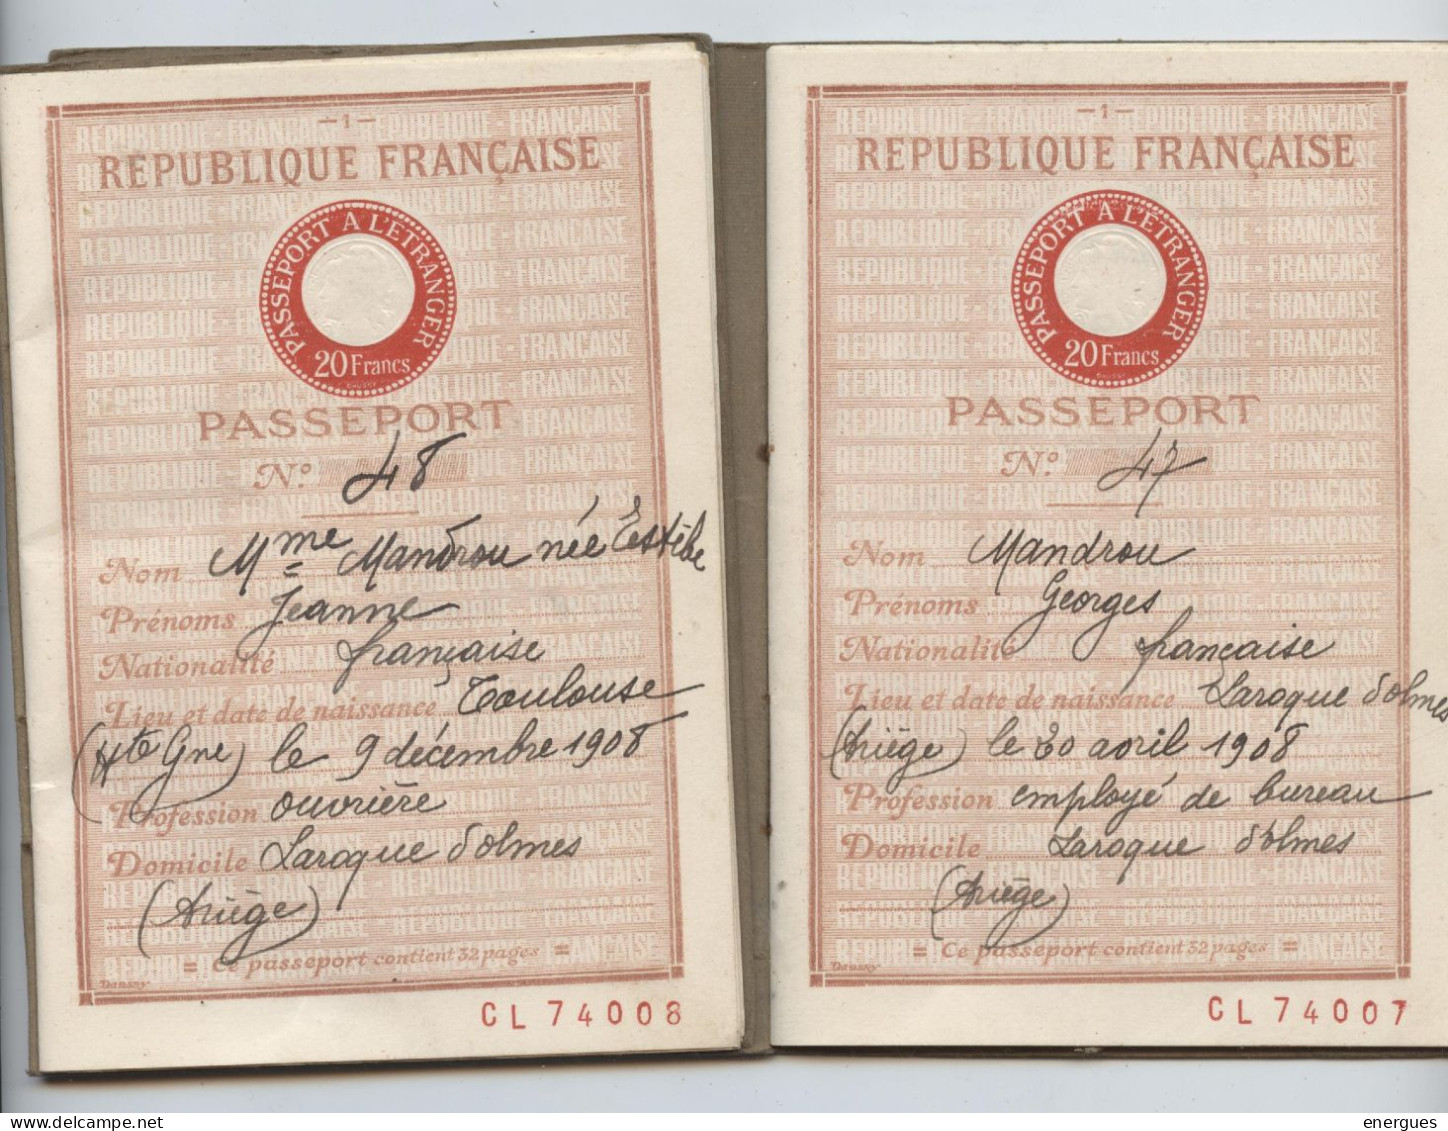 — 1 —
REPUBLIQUE FRANÇAISE
PASSEPORT A L'ETRANGER
20 Francs
PASSEPORT
N° 48
Nom Mme Mandrou née Estèbe
Prénoms Jeanne
Nationalité française
Lieu et date de naissance Toulouse
(Hte Gne) le 9 décembre 1908
Profession ouvrière
Domicile Laroque d'olmes
(Ariège)
= Ce passeport contient 32 pages =
Daussy
CL 74008
— 1 —
REPUBLIQUE FRANÇAISE
PASSEPORT A L'ETRANGER
20 Francs
PASSEPORT
N° 47
Nom Mandrou
Prénoms Georges
Nationalité francaise
Lieu et date de naissance Laroque d'olmes
(Ariège) le 30 avril 1908
Profession employé de bureau
Domicile Laroque d'olmes
(Ariège)
= Ce passeport contient 32 pages =
Daussy
CL 74007
www.delcampe.net
energues